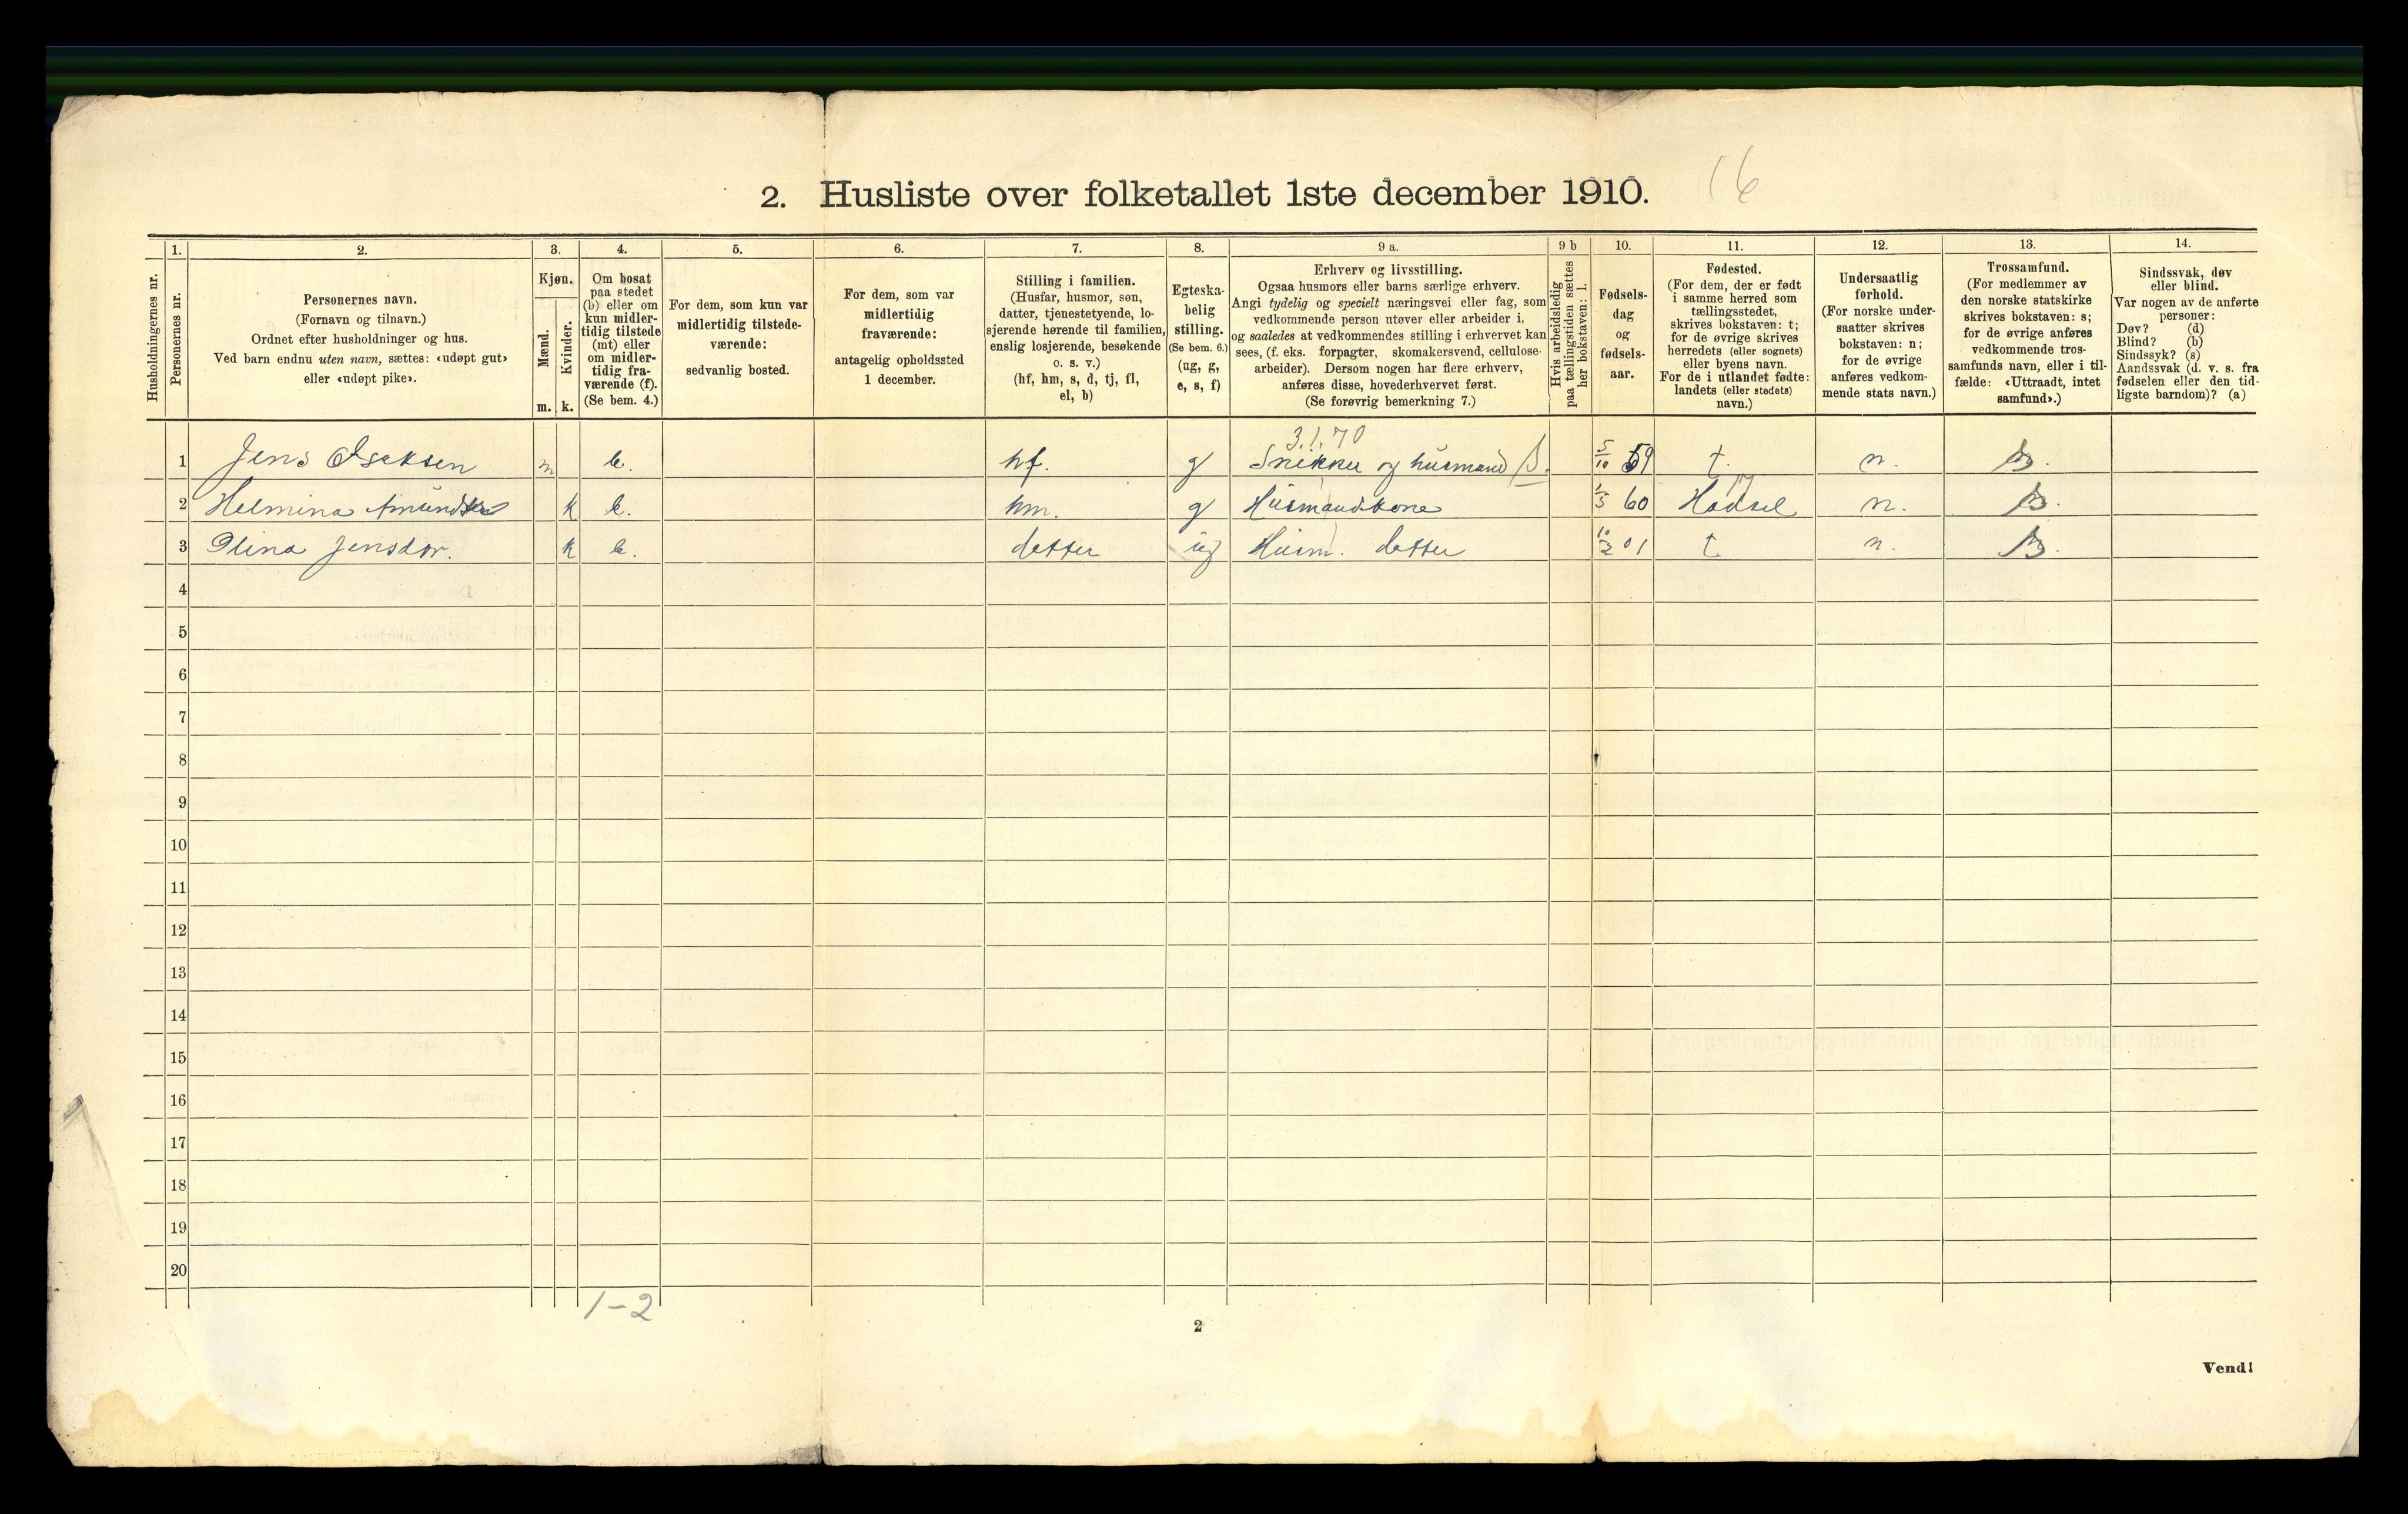 2. Husliste over folketallet 1ste december 1910.
16
Husholdningernes nr.
1.
Personernes nr.
2.
Personernes navn.
(Fornavn og tilnavn.)
Ordnet efter husholdninger og hus.
Ved barn endnu uten navn, sættes: «udøpt gut»
eller «udøpt pike».
3.
Kjøn.
Mænd.
Kvinder.
m.
k.
4.
Om bosat
paa stedet
(b) eller om
kun midler-
tidig tilstede
(mt) eller
om midler-
tidig fra-
værende (f).
(Se bem. 4.)
5.
For dem, som kun var
midlertidig tilstede-
værende:
sedvanlig bosted.
6.
For dem, som var
midlertidig
fraværende:
antagelig opholdssted
1 december.
7.
Stilling i familien.
(Husfar, husmor, søn,
datter, tjenestetyende, lo-
sjerende hørende til familien,
enslig losjerende, besøkende
o. s. v.)
(hf, hm, s, d, tj, fl,
el, b)
8.
Egteska-
belig
stilling.
(Se bem. 6.)
(ug, g,
e, s, f)
9 a.
Erhverv og livsstilling.
Ogsaa husmors eller barns særlige erhverv.
Angi tydelig og specielt næringsvei eller fag, som
vedkommende person utøver eller arbeider i,
og saaledes at vedkommendes stilling i erhvervet kan
sees, (f. eks. forpagter, skomakersvend, cellulose-
arbeider). Dersom nogen har flere erhverv,
anføres disse, hovederhvervet først.
(Se forøvrig bemerkning 7.)
9 b
Hvis arbeidsledig
paa tællingstiden sættes
her bokstaven: l.
10.
Fødsels-
dag
og
fødsels-
aar.
11.
Fødested.
(For dem, der er født
i samme herred som
tællingsstedet,
skrives bokstaven: t;
for de øvrige skrives
herredets (eller sognets)
eller byens navn.
For de i utlandet fødte:
landets (eller stedets)
navn.)
12.
Undersaatlig
forhold.
(For norske under-
saatter skrives
bokstaven: n;
for de øvrige
anføres vedkom-
mende stats navn.)
13.
Trossamfund.
(For medlemmer av
den norske statskirke
skrives bokstaven: s;
for de øvrige anføres
vedkommende tros-
samfunds navn, eller i til-
fælde: «Uttraadt, intet
samfund».)
14.
Sindssvak, døv
eller blind.
Var nogen av de anførte
personer:
Døv? (d)
Blind? (b)
Sindssyk? (s)
Aandssvak (d. v. s. fra
fødselen eller den tid-
ligste barndom)? (a)
3.1.70
1 Jens Isaksen m b. hf. g Snikker og husmand 5/10 59 t. n. s.
17
2 Helmina k b. hm. g Husmandskone 1/5 60 Hadsel n. s.
3 Olina Jensdtr. k b. datter ug Husm. datter 10/2 01 t n. s.
4
5
6
7
8
9
10
11
12
13
14
15
16
17
18
19
20
1-2
2
Vend!